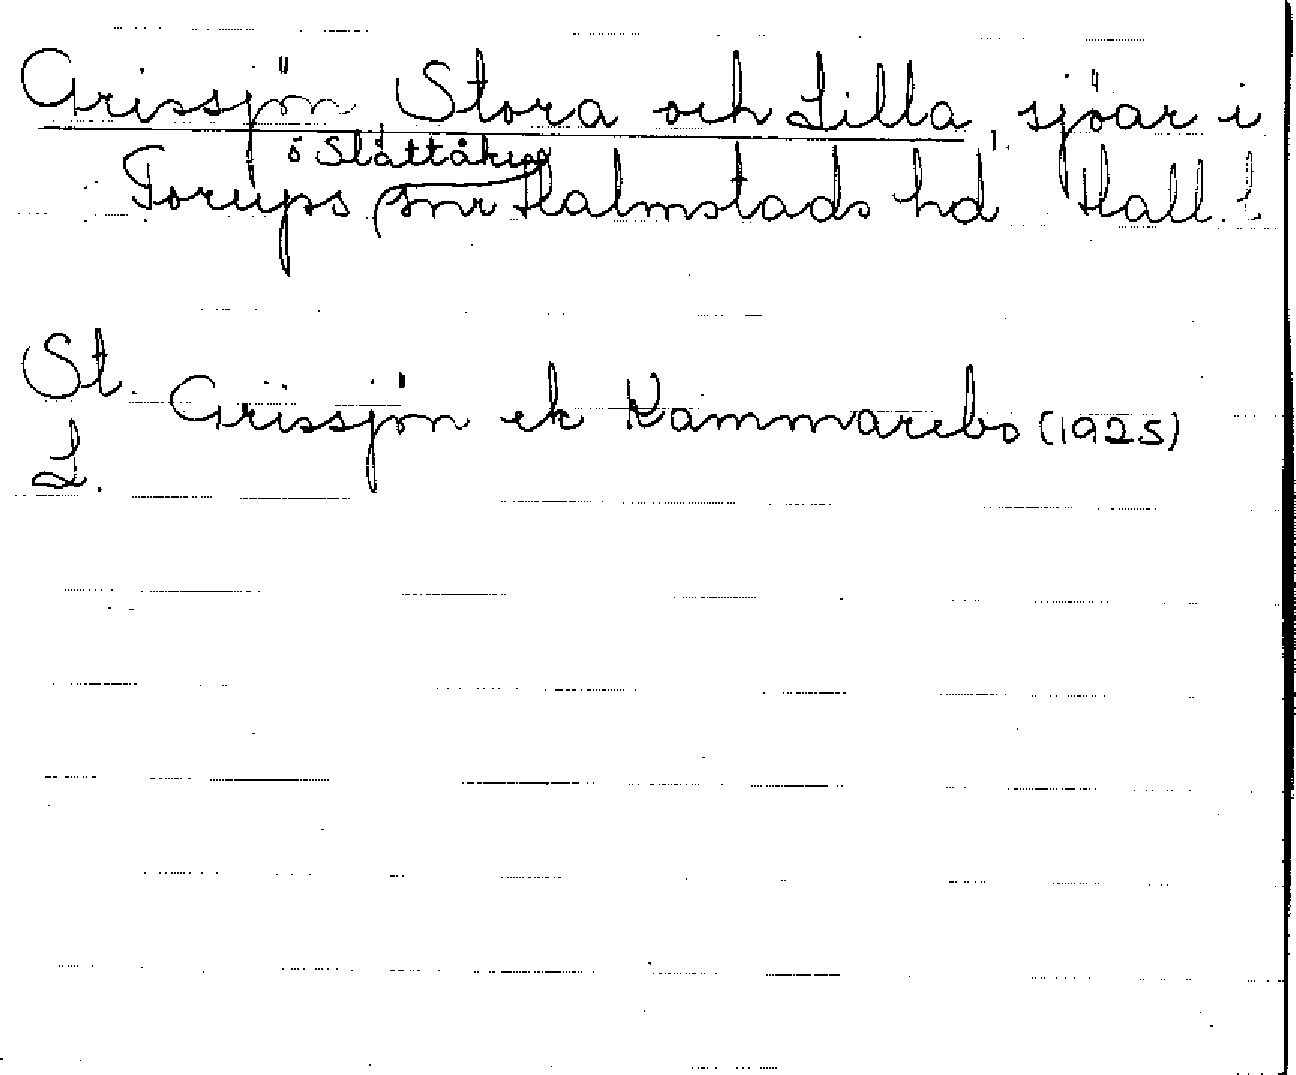 Grissjön Stora och Lilla, sjöar i
o Slättåkra
Torups snr Halmstads hd Hall. l.
St.
Grissjön ek Kammarebo (1925)
L.